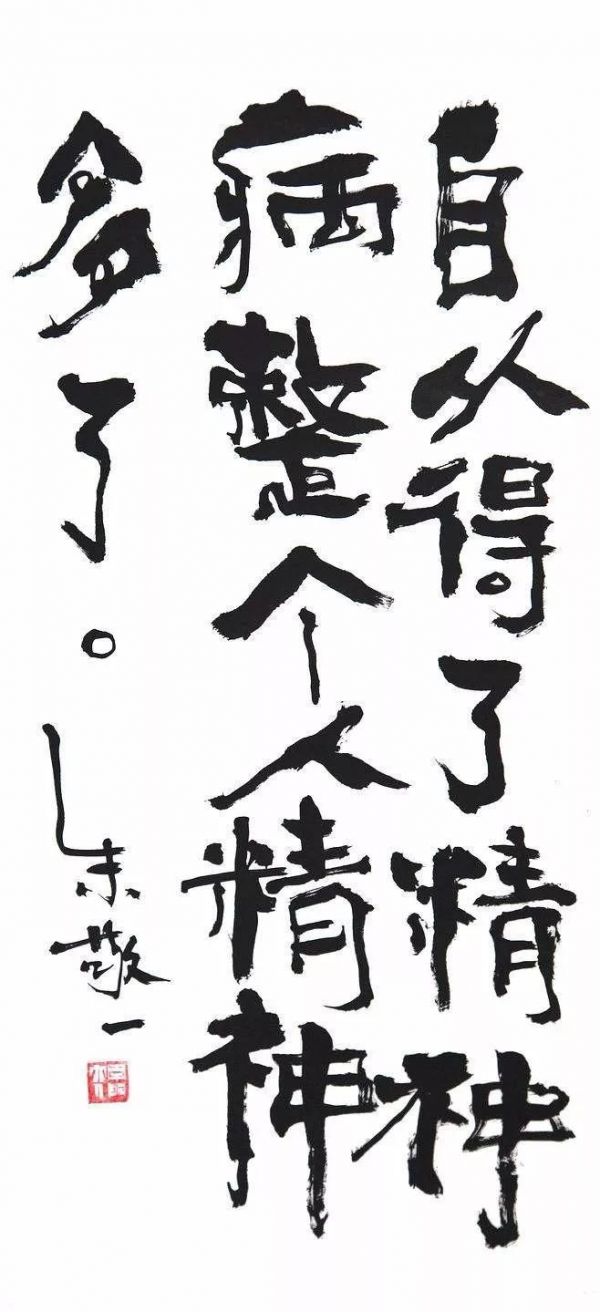 自从得了精神
病整个人精神
多了。
朱敬一